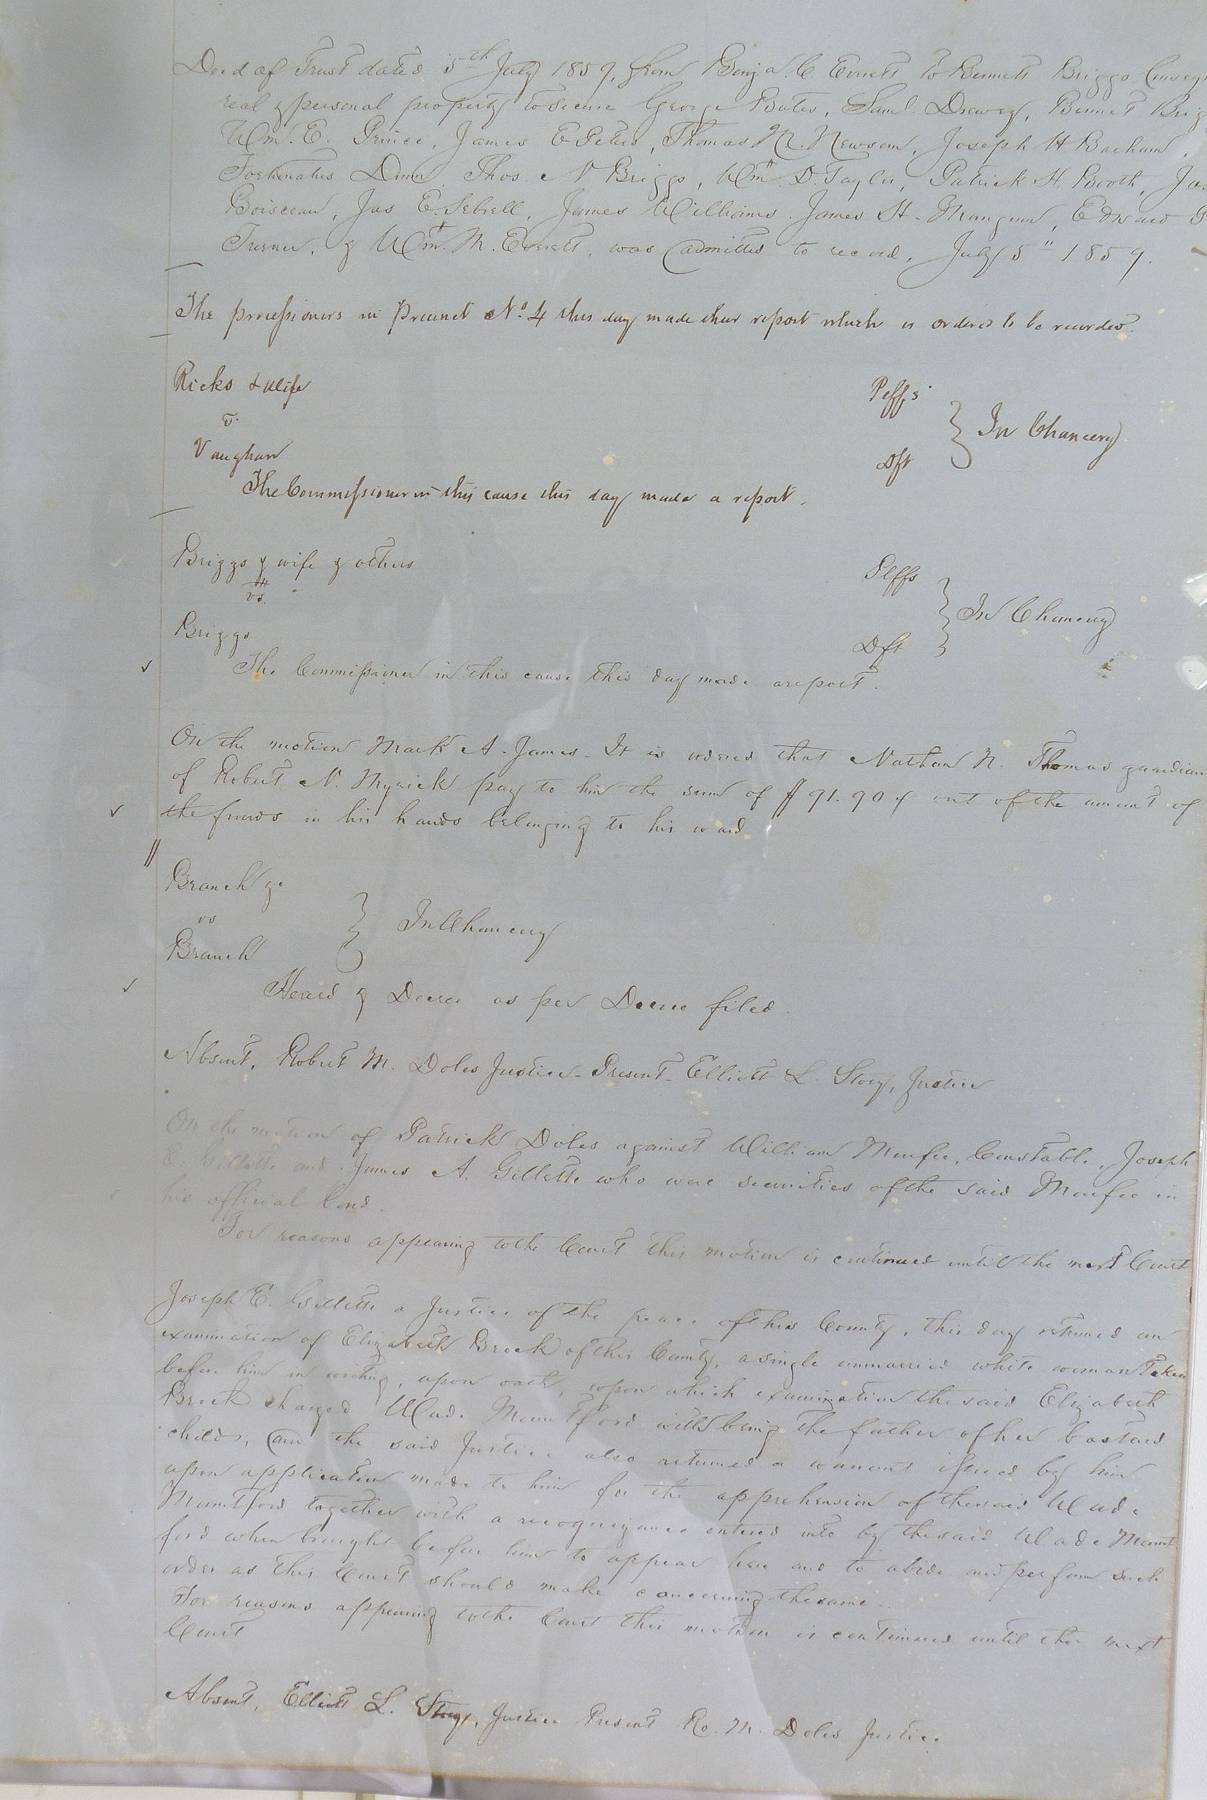 Deed of Trust dated 5th July 1859, from Benja. C. Everett to Bennett Briggs
real & personal property to secure George Bates, Saml. Drewry, Bennet
Wm. E. Prince, James E Peters, Thomas M. Newsom, Joseph H Barham,
Fortunatus Dunn, Thos. N Briggs, Wm. D. Taylor, Patrick H. Booth,
Boisceau, Jas E. Sebrell, James Williams. James H. Mangum, Edward
Turner, & Wm. M. Everett, was admitted to record, July 5" 1859.
The processioners in Precinct No. 4 this day made their report which is ordered to be recorded.
Ricks & Wife Plffs
v.
Vaughan Dft } In Chancery
The Commissioner in this cause this day made a report.
Briggs & wife & others Plffs
vs.
Briggs Dft } In Chancery
The Commissioner in this cause this day made a report.
On the motion Mark A. James - It is ordered that Nathan N. Thomas guardian
of Robert N. Myrick pay to him the sum of $91.90 out of the amount of
the funds in his hands belonging to his ward
Branch &c
vs } In Chancery
Branch
Heard & Decree as per Decree filed.
Absent, Robert M. Doles Justice - Present - Elliott L. Story, Justice
On the motion of Patrick Doles against William Murfee, Constable, Joseph
E. Gillette and James A. Gillette who were securities of the said Murfee in
his official bond.
For reasons appearing to the Court this motion is continued until the next Court
Joseph E. Gillette a Justice of the peace of this County, this day returned an
examination of Elizabeth Brock of this County, a single unmarried white woman taken
before him in writing, upon oath, upon which examination the said Elizabeth
Brock charged Wade Mountford with being the father of her bastard
child, and the said Justice also returned a warrant issued by him
upon application made to him for the apprehension of the said Wade
Mountford together with a recognizance entered into by the said Wade Mount
ford when brought before him to appear here and to abide and perform such
order as this Court should make concerning the same -
For reasons appearing to the Court this motion is continued until the next
Court
Absent, Elliott L. Story, Justice Present Ro. M. Doles Justice.